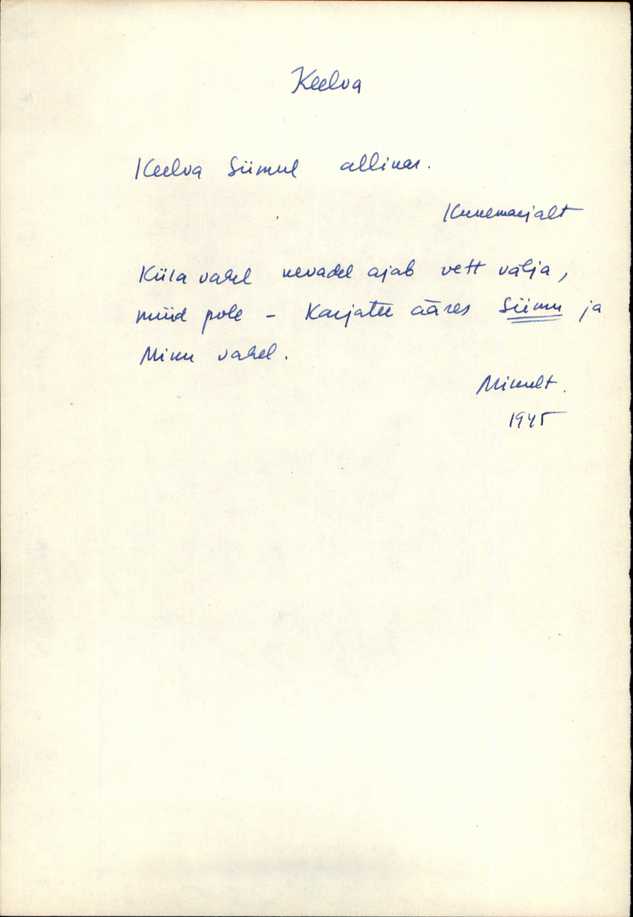 Keelva
Keelva Siimul allikas.
Kunemarjalt
Küla vahel kevadel ajab vett välja,
muud pole - Karjatee ääres Siimu ja
Minu vahel.
Minult.
1945